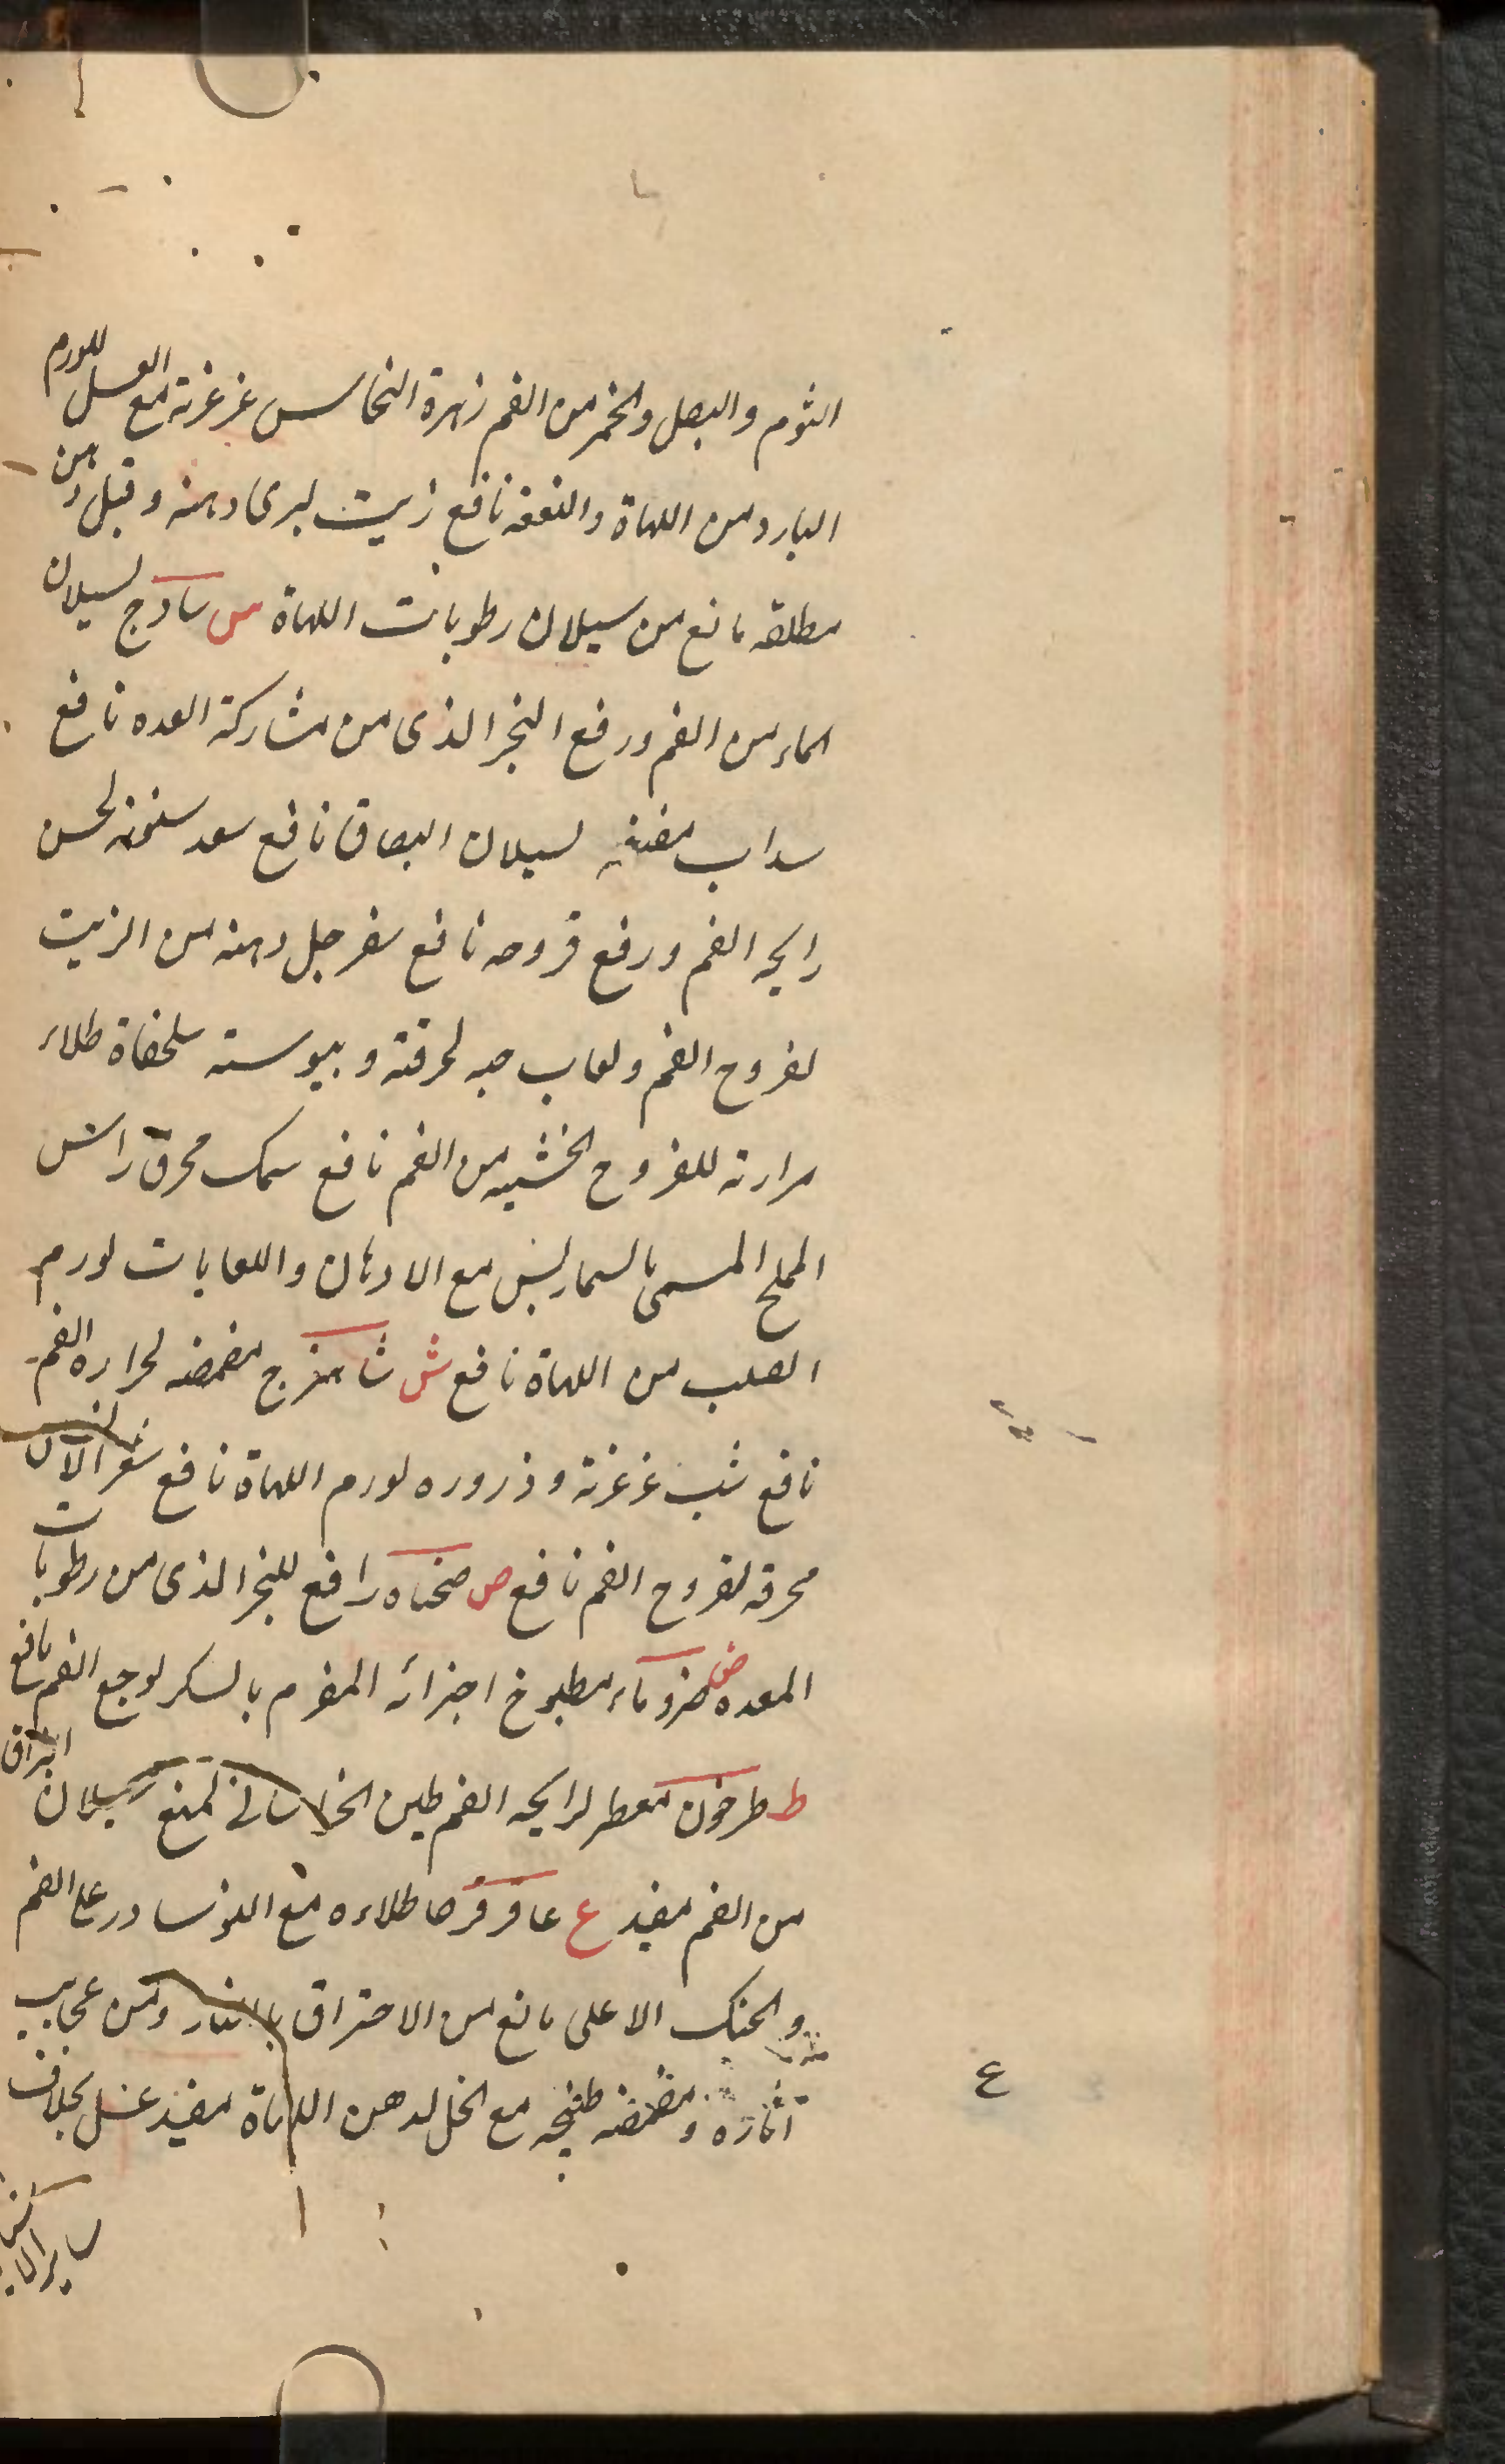 الثوم والبصل والخمر من الفم زهرة النحاس غرغرته مع العسل للورم
البارد من اللهاة والنغنغه نافع زيت لبرى دهنه وقبل دهن
مطلقه مانع من سيلان رطوبات اللهاة س سادج لسيلان
الماء من الفم ورفع البخر الذى من مشاركة المعده نافع
سداب مضغه لسيلان البصاق نافع سعد سنونه لحسن
رايحه الفم ورفع قروحه نافع سفرجل دهنه من الزيت
لقروح الفم ولعاب حبه لحرقته ويبوسته سلحفاة طلاء
مرارته للقروح الخبيثه من الفم نافع سمك محرق راس
المملح المسمى بالسماريس مع الادهان واللعابات لورم
الصلب من اللهاة نافع ش شاهترج مضمضه لحراره الفم
نافع شب غرغرته وذروره لورم اللهاة نافع شعر الانسان
محرقه لقروح الفم نافع ص صحناه رافع للبخر الذى من رطوبات
المعده ض ضرو ماء مطبوخ اجزائه المقوم بالسكر لوجع الفم نافع
ط طرخون معطر لرايحه الفم طين الخراسانى لمنع سيلان البزاق
من الفم مفيد ع عاقرقرحا طلاءه مع النوشادر على الفم
والحنك الاعلى مانع من الاحتراق بالنار ومن عجايب
آثاره ومضمضه طبيخه مع الخل لدهن اللهاة مفيد عسل بخلاف
ع